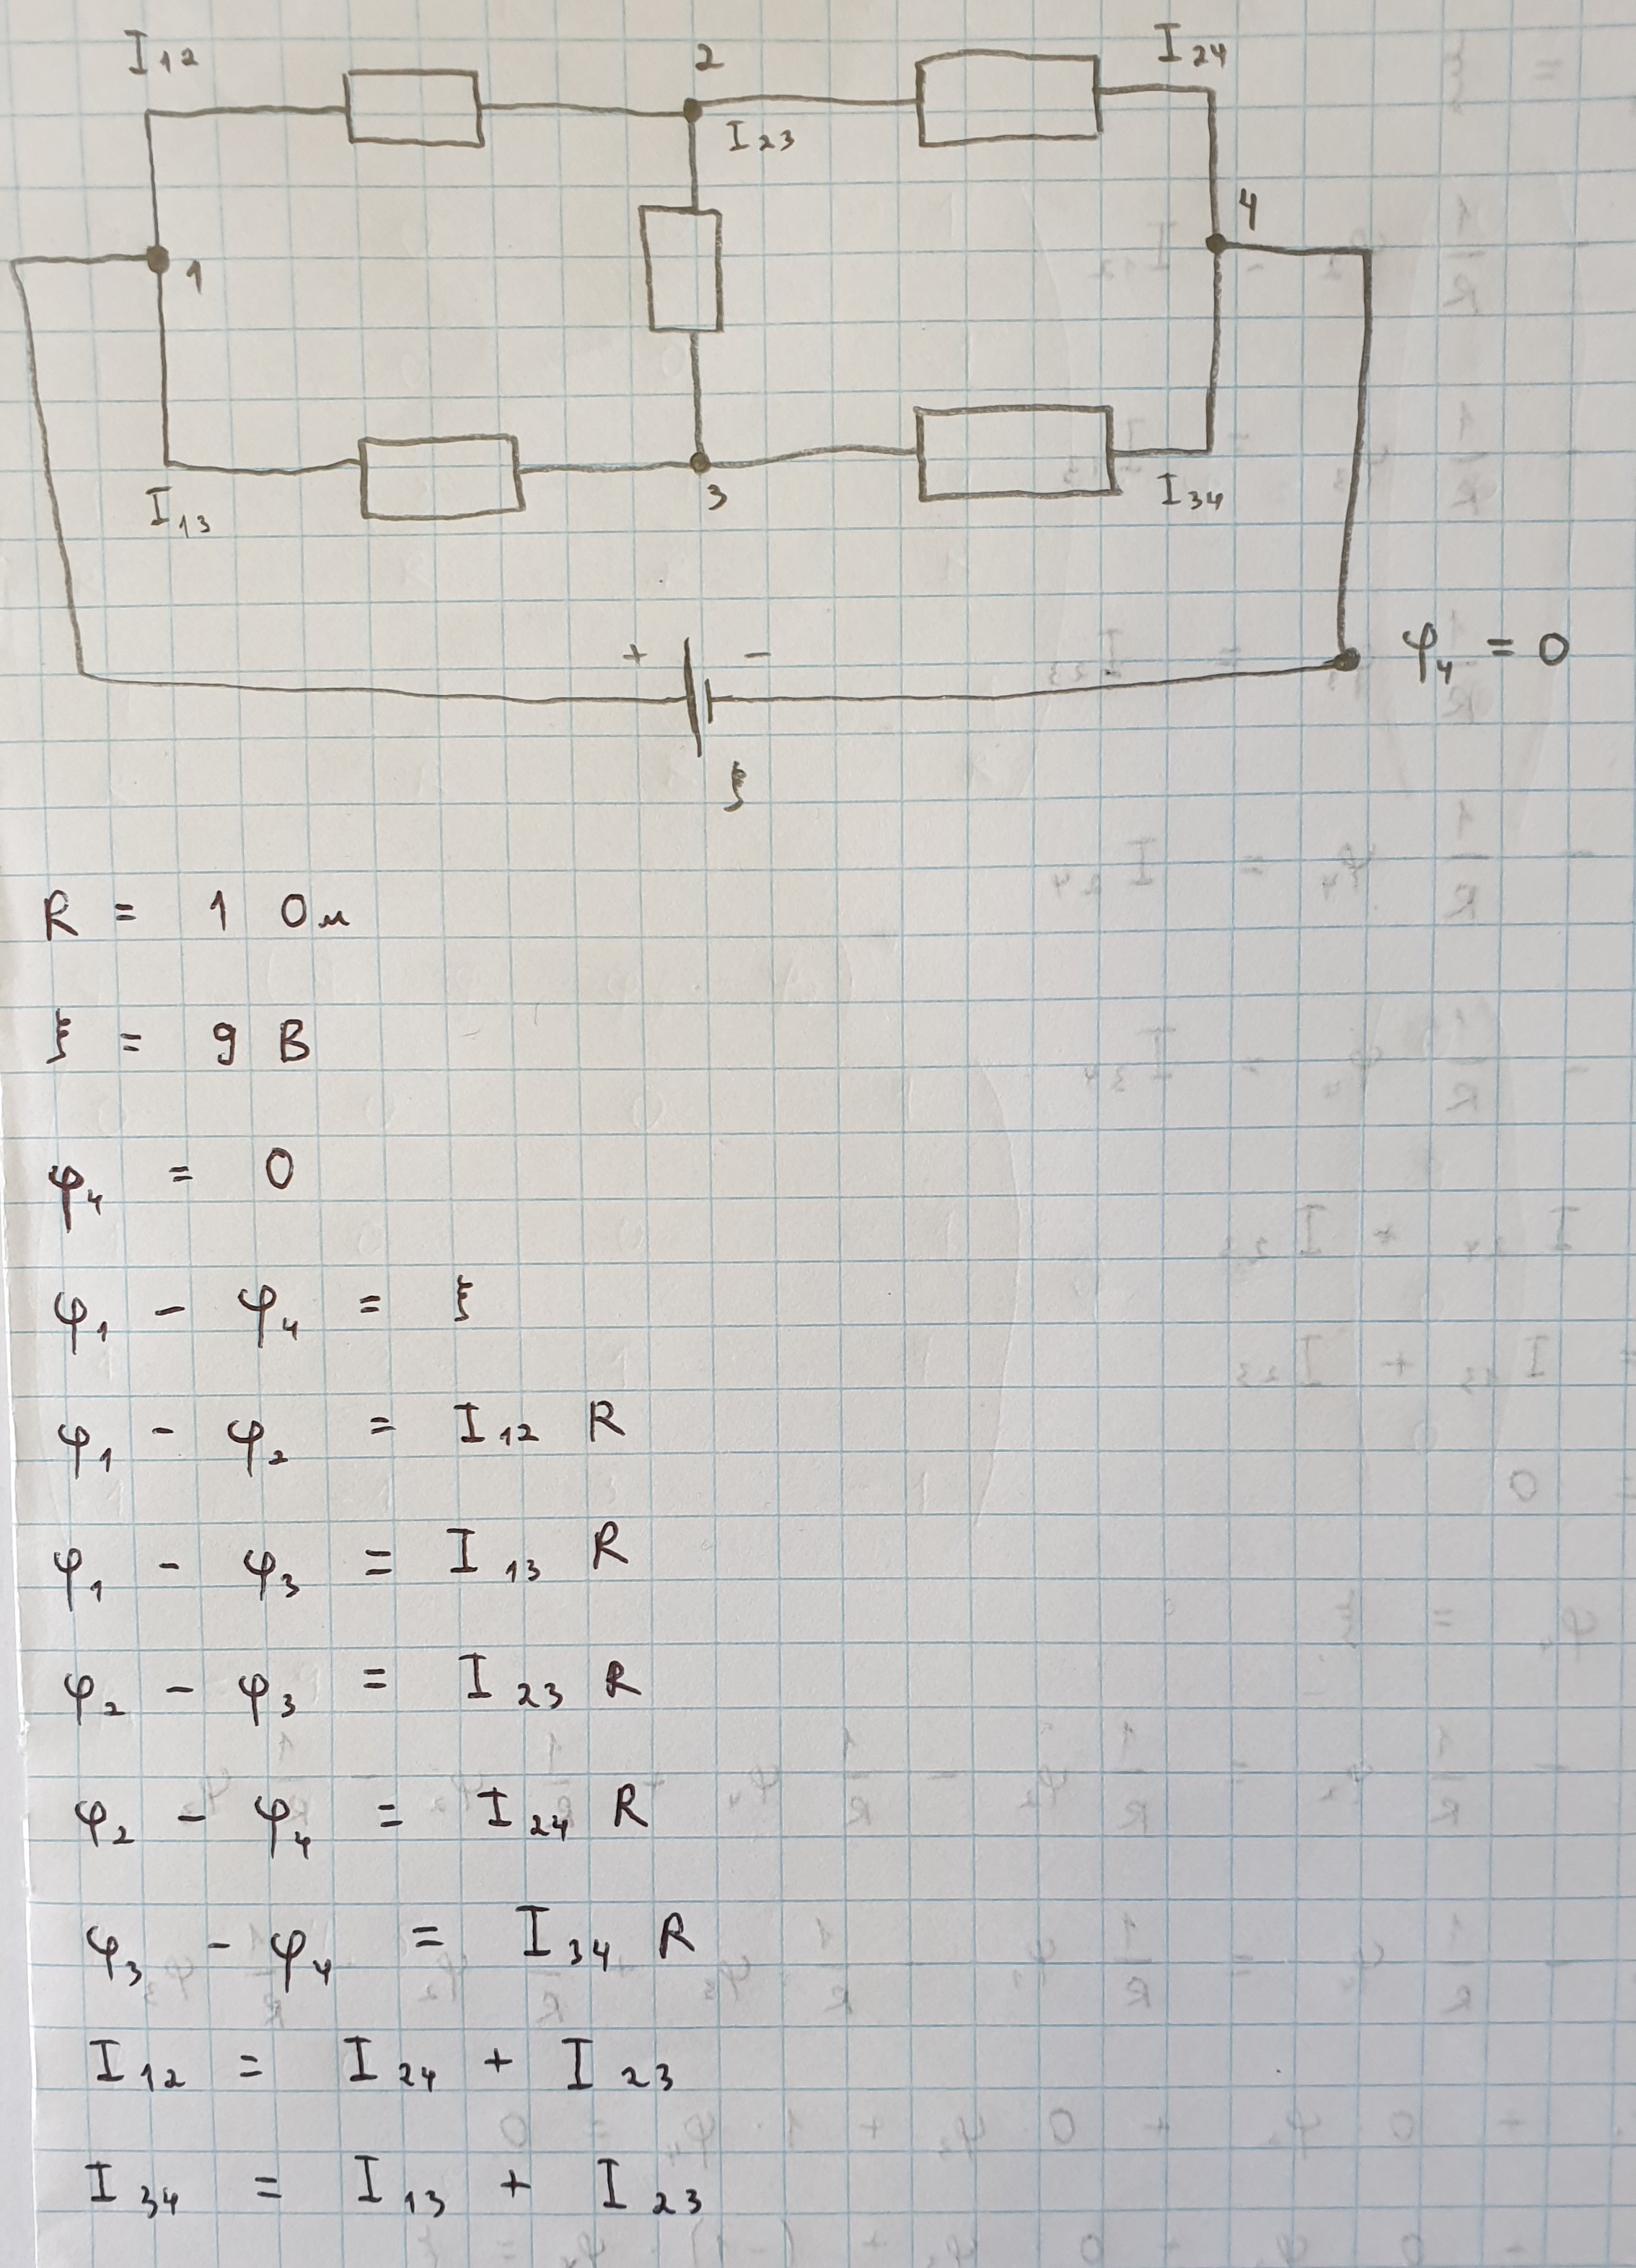 I₁₂ 2 I₂₄
I₂₃
4
1
I₁₃ 3 I₃₄
+ − φ₄ = 0
ξ
R = 1 Ом
ξ = 9 В
φ₄ = 0
φ₁ − φ₄ = ξ
φ₁ − φ₂ = I₁₂ R
φ₁ − φ₃ = I₁₃ R
φ₂ − φ₃ = I₂₃ R
φ₂ − φ₄ = I₂₄ R
φ₃ − φ₄ = I₃₄ R
I₁₂ = I₂₄ + I₂₃
I₃₄ = I₁₃ + I₂₃